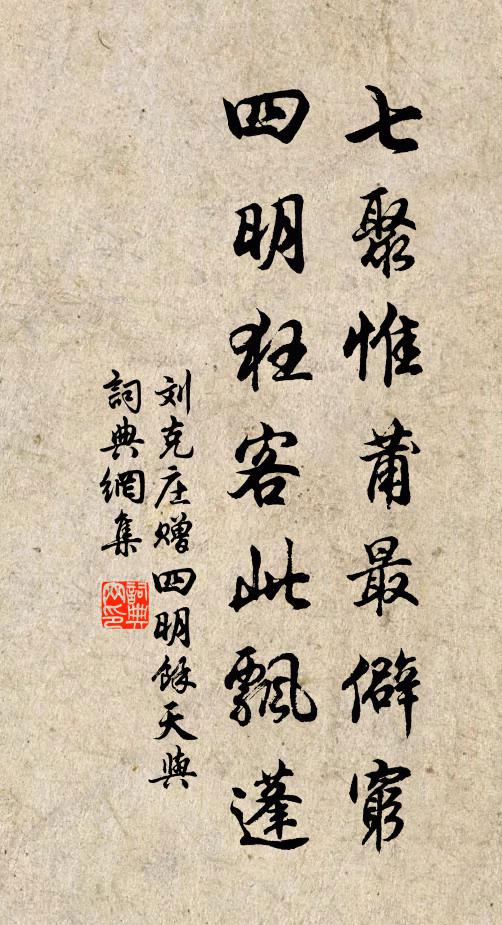 七聚惟莆最僻窮
四明狂客此飄蓬
刘克庄赠四明餘天與
詞典網集
詞典網印